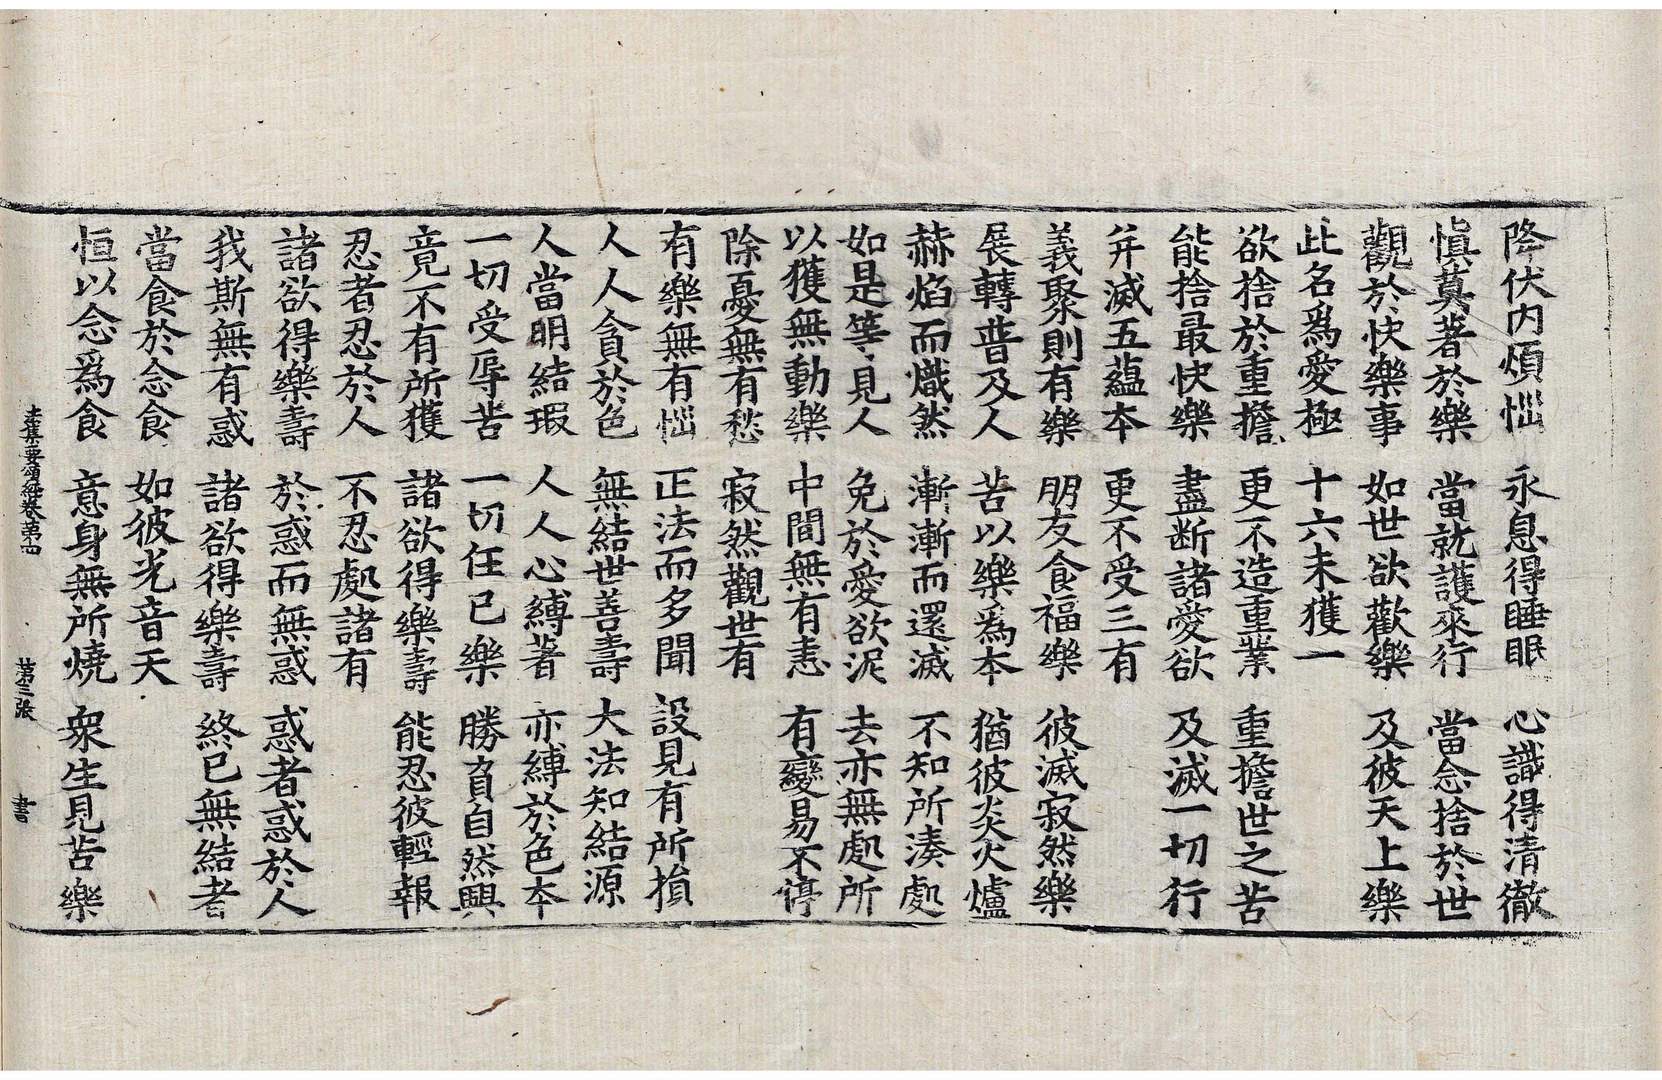 降伏内煩惱　永息得睡眠　心識得清徹
慎莫著於樂　當就護來行　當念捨於世
觀於快樂事　如世欲歡樂　及彼天上樂
此名爲愛極　十六未獲一
欲捨於重擔　更不造重業　重擔世之苦
能捨最快樂　盡断諸愛欲　及滅一切行
并滅五蘊本　更不受三有
義聚則有樂　朋友食福樂　彼滅寂然樂
展轉普及人　苦以樂爲本　猶彼炎火爐
赫焰而熾然　漸漸而還滅　不知所湊處
如是等見人　免於愛欲泥　去亦無處所
以獲無動樂　中間無有恚　有變易不停
除憂無有愁　寂然觀世有
有樂無有惱　正法而多聞　設見有所損
人人貪於色　無結世善壽　大法知結源
人當明結瑕　人人心縛著　亦縛於色本
一切受辱苦　一切任已樂　勝負自然興
竟不有所獲　諸欲得樂壽　能忍彼輕報
忍者忍於人　不忍處諸有
諸欲得樂壽　於惑而無惑　惑者惑於人
我斯無有惑　諸欲得樂壽　終已無結者
當食於念食　如彼光音天
恒以念爲食　意身無所燒　衆生見苦樂
集要頌經卷第四　第三張　書